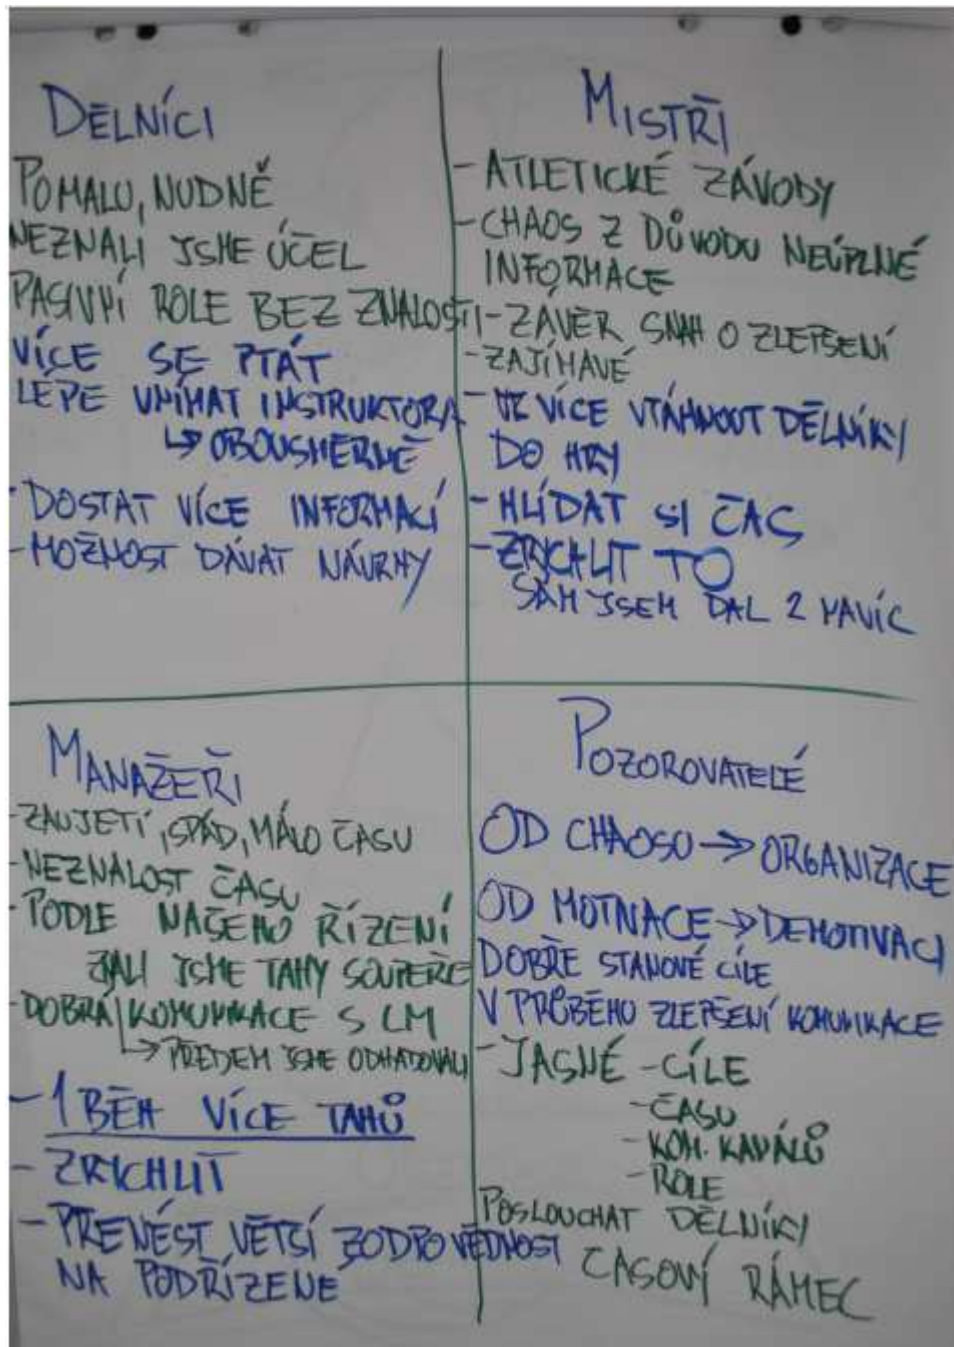 DĚLNÍCI
POMALU, NUDNĚ
NEZNALI JSME ÚČEL
PASIVNÍ ROLE BEZ ZNALOSTI
VÍCE SE PTÁT
LÉPE VNÍMAT INSTRUKTORA
↳ OBOUSMĚRNĚ
- DOSTAT VÍCE INFORMACÍ
- MOŽNOST DÁVAT NÁVRHY
MISTŘI
- ATLETICKÉ ZÁVODY
- CHAOS Z DŮVODU NEÚPLNÉ
INFORMACE
- ZÁVĚR SNAH O ZLEPŠENÍ
- ZAJÍMAVÉ
- VÍCE VTÁHNOUT DĚLNÍKY
DO HRY
- HLÍDAT SI ČAS
- ZRYCHLIT TO
SÁM JSEM DAL 2 NAVÍC
MANAŽEŘI
- ZAUJETÍ, SPÁD, MÁLO ČASU
- NEZNALOST ČASU
- PODLE NAŠEHO ŘÍZENÍ
ZNALI JSME TAHY SOUPEŘE
- DOBRÁ KOMUNIKACE S LM
↳ PŘEDEM JSME ODHADOVALI
- 1 BĚH VÍCE TAHŮ
- ZRYCHLIT
- PŘENÉST VĚTŠÍ ZODPOVĚDNOST
NA PODŘÍZENE
POZOROVATELÉ
OD CHAOSU → ORGANIZACE
OD MOTIVACE → DEMOTIVACI
DOBŘE STANOVÉ CÍLE
V PRŮBĚHU ZLEPŠENÍ KOMUNIKACE
- JASNÉ - CÍLE
- ČASU
- KOM. KANÁLŮ
- ROLE
POSLOUCHAT DĚLNÍKY
ČASOVÝ RÁMEC